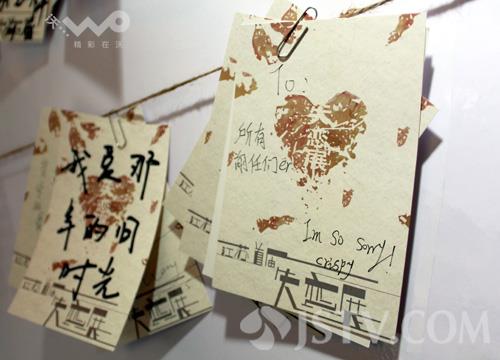 沃... WO
精彩在沃
我是那
年的旧
时光
江苏首届
失恋展
To:
所有
前任们er
I'm so sorry!
crispy
江苏首届
失恋展
JSTV.COM